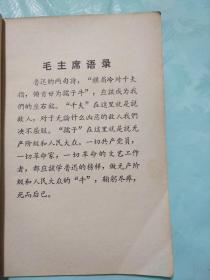 毛主席语录
鲁迅的两句诗，“横眉冷对千夫
指，俯首甘为孺子牛”，应该成为我
们的座右铭。“千夫”在这里就是说
敌人，对于无论什么凶恶的敌人我们
决不屈服。“孺子”在这里就是说无
产阶级和人民大众。一切共产党员，
一切革命家，一切革命的文艺工作
者，都应该学鲁迅的榜样，做无产阶
级和人民大众的“牛”，鞠躬尽瘁，
死而后已。